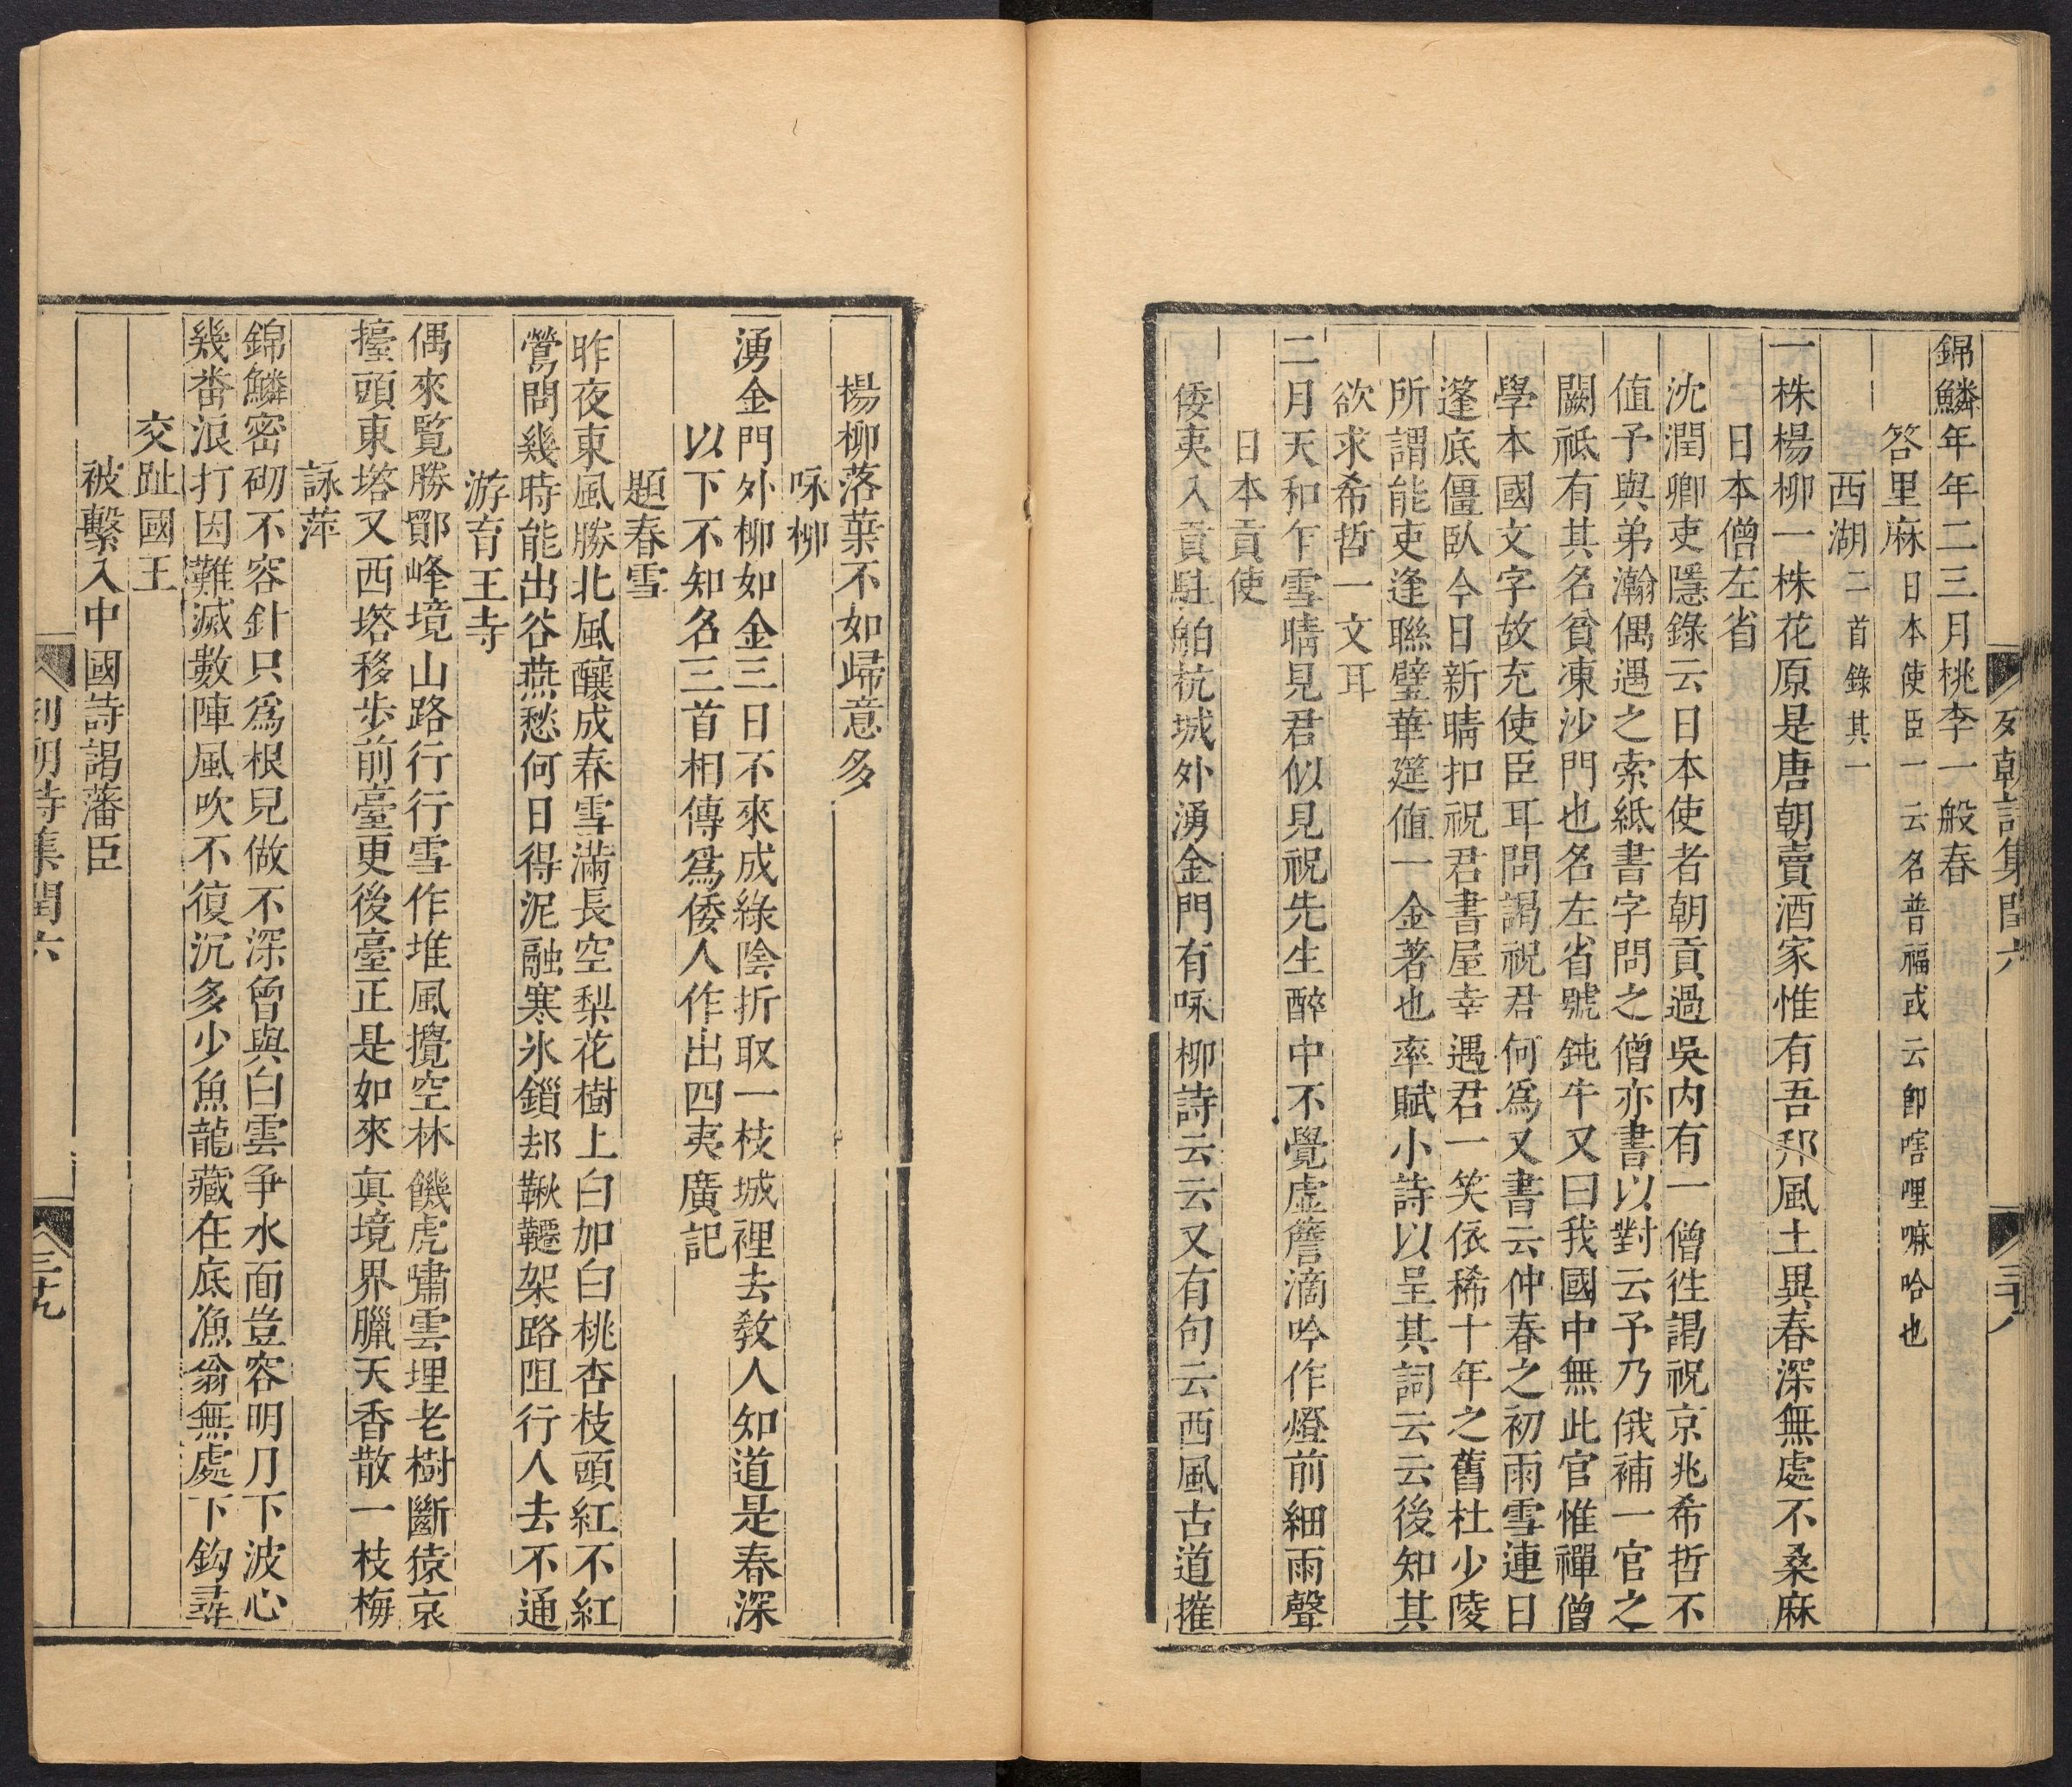 列朝詩集閏六
三十八
錦鱗年年二三月桃李一般春
答里麻日本使臣一云名普福或云卽嗐哩嘛哈也
西湖二首錄其一
一株楊柳一株花原是唐朝賣酒家惟有吾邦風土異春深無處不桑麻
日本僧左省
沈潤卿吏隱錄云日本使者朝貢過吳内有一僧徃謁祝京兆希哲不
值予與弟瀚偶遇之索紙書字問之僧亦書以對云予乃俄補一官之
闕祗有其名貧凍沙門也名左省號鈍牛又曰我國中無此官惟禪僧
學本國文字故充使臣耳問謁祝君何爲又書云仲春之初雨雪連日
篷底僵臥今日新晴扣祝君書屋幸遇君一笑依稀十年之舊杜少陵
所謂能吏逢聯璧華筵値一金著也率賦小詩以呈其詞云云後知其
欲求希哲一文耳
二月天和乍雪晴見君似見祝先生醉中不覺虛簷滴吟作燈前細雨聲
日本貢使
倭夷入貢駐舶杭城外湧金門有咏柳詩云云又有句云西風古道摧
楊柳落葉不如歸意多
咏柳
湧金門外柳如金三日不來成綠陰折取一枝城裡去敎人知道是春深
以下不知名三首相傳爲倭人作出四夷廣記
題春雪
昨夜東風勝北風釀成春雪滿長空梨花樹上白加白桃杏枝頭紅不紅
鶯問幾時能出谷燕愁何日得泥融寒氷鎖刧鞦韆架路阻行人去不通
游育王寺
偶來覧勝鄮峰境山路行行雪作堆風攪空林饑虎嘯雲埋老樹斷猿哀
擡頭東塔又西塔移步前臺更後臺正是如來眞境界臘天香散一枝梅
詠萍
錦鱗密砌不容針只爲根兒做不深曾與白雲爭水面豈容明月下波心
幾畨浪打因難滅數陣風吹不復沉多少魚龍藏在底漁翁無處下鈎尋
交趾國王
被繫入中國詩謁藩臣
列朝詩集閏六
三十九